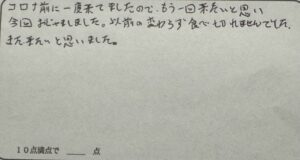 コロナ前に一度来てましたので、もう一回来たいと思い
今回おじゃましました。以前の変わらず食べ切れませんでした。
また来たいと思いました。
10点満点で ＿＿ 点